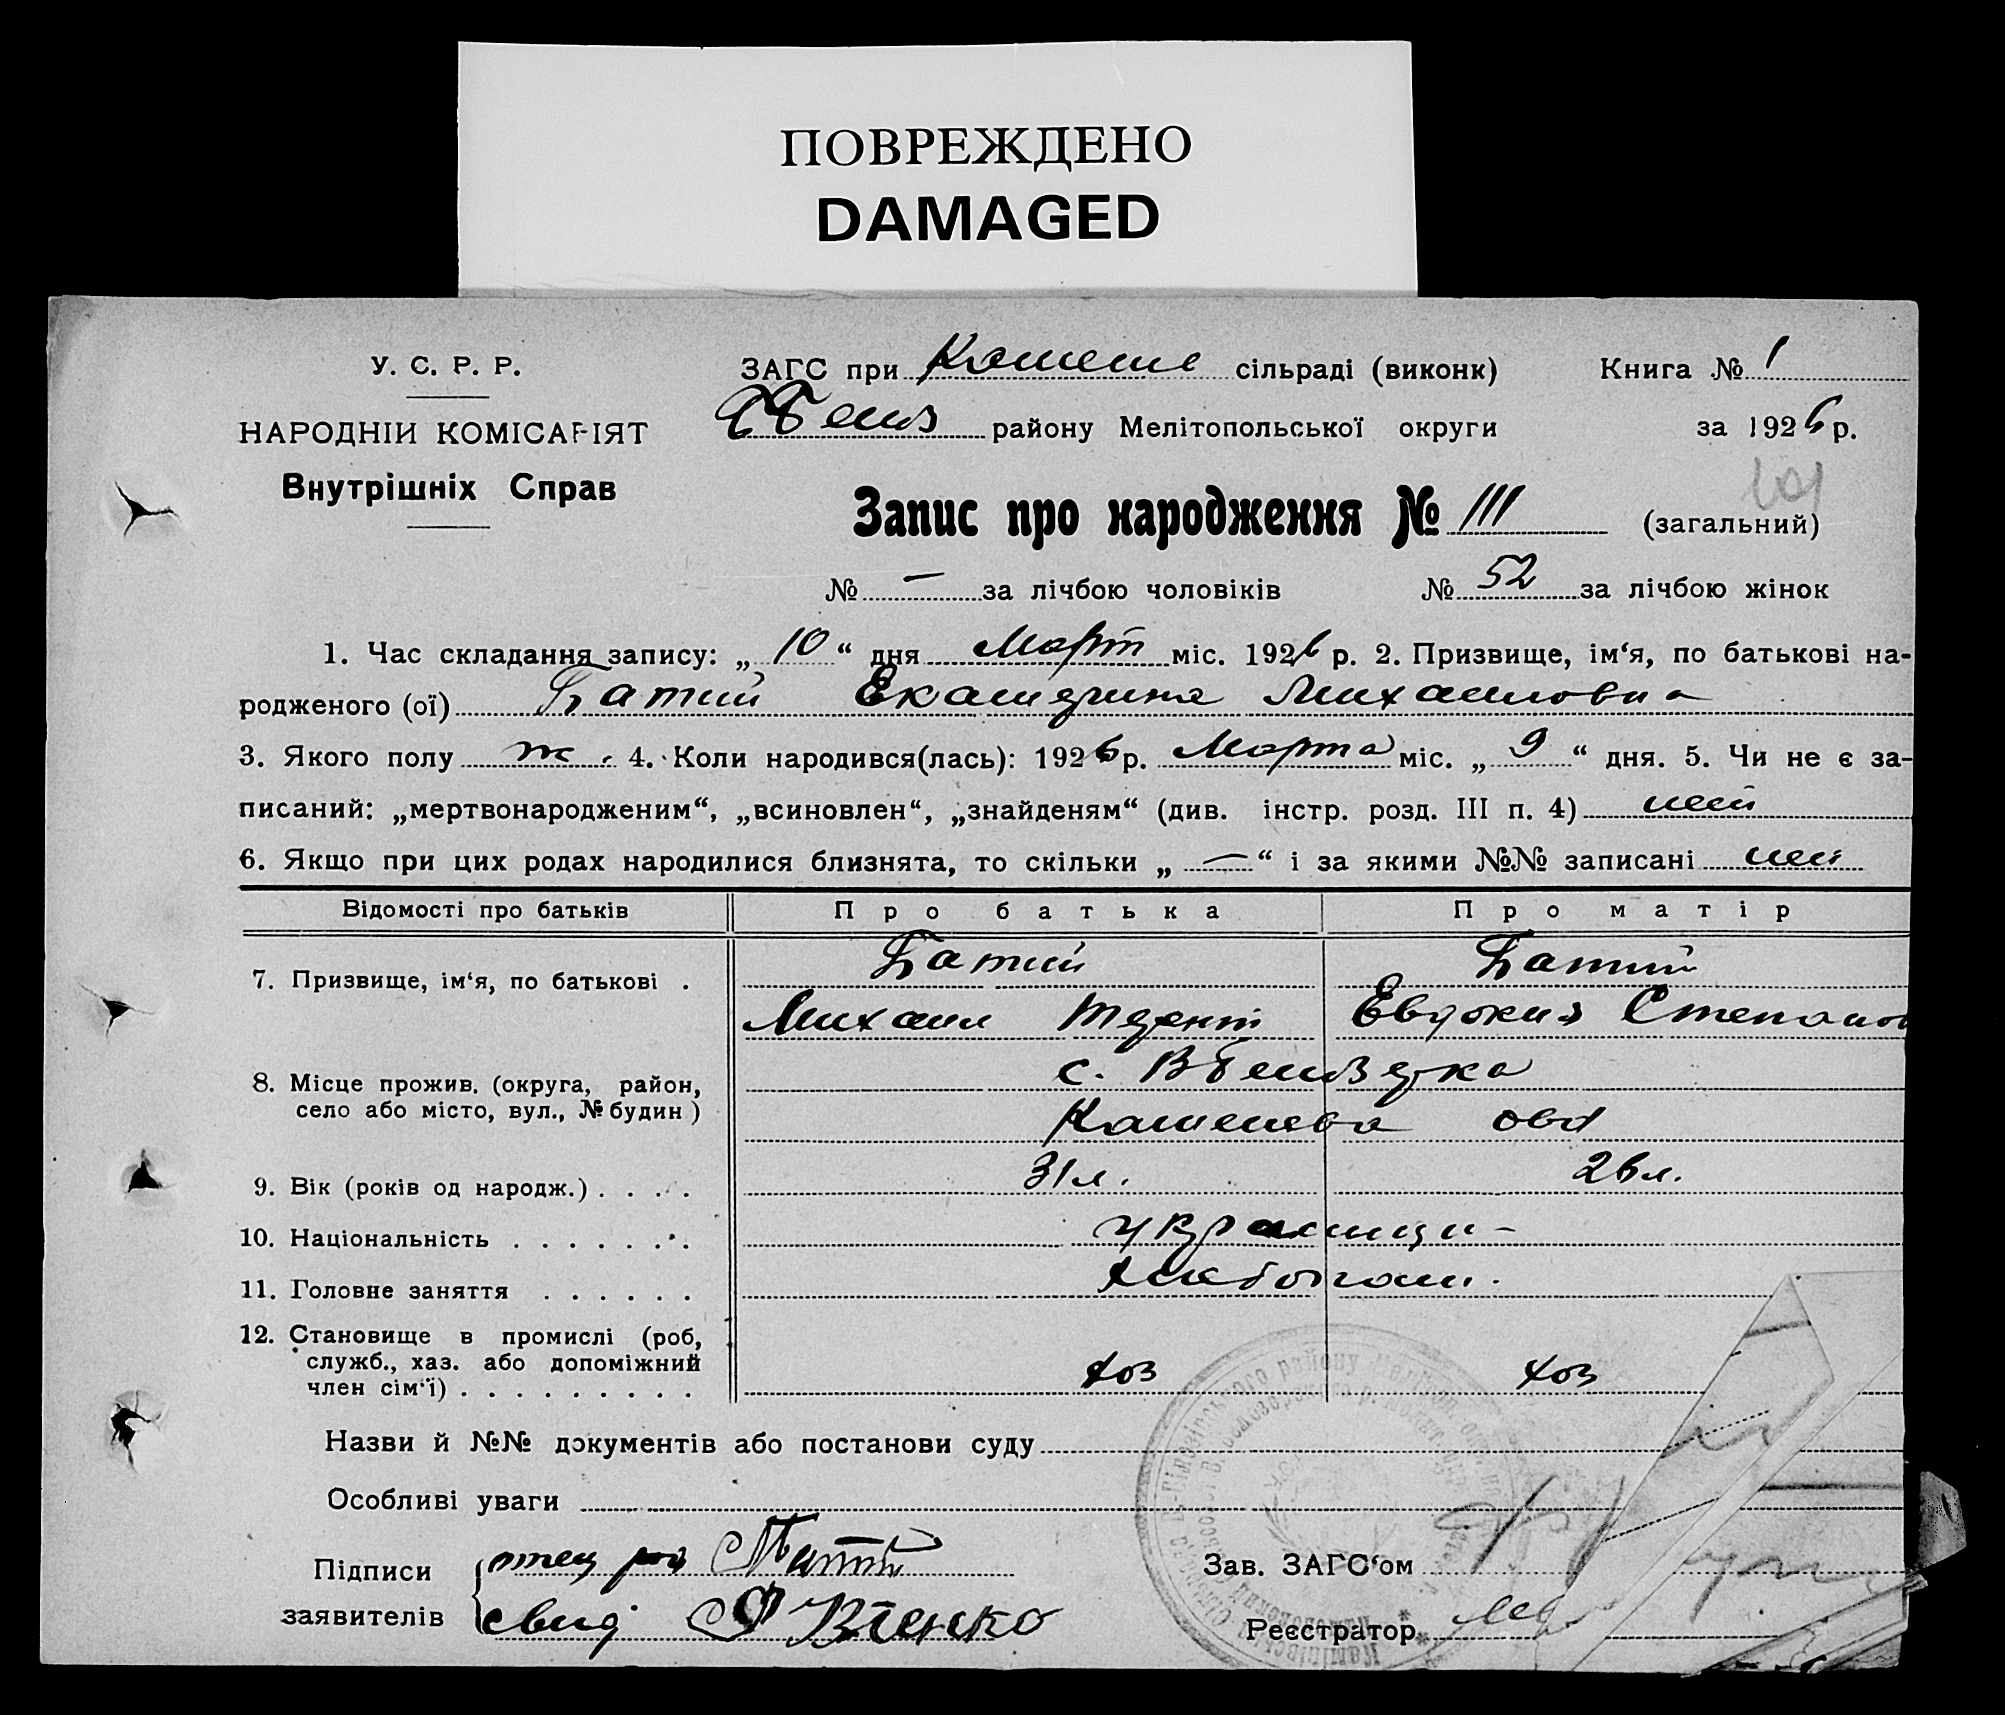 ПОВРЕЖДЕНО
DAMAGED
У. С. Р. Р.
ЗАГС при сільраді (виконк) Книга № 1
НАРОДНІЙ КОМІСАРІЯТ
району Мелітопольської округи за 1926 р.
Внутрішніх Справ
101
Запис про народження № 111 (загальний)
№ — за лічбою чоловіків № 52 за лічбою жінок
1. Час складання запису: „ 10 “ дня Март міс. 1926 р. 2. Призвище, ім‘я, по батькові на-
родженого (ої) Батий Екатерина Михаиловна
3. Якого полу ж. 4. Коли народився(лась): 1926 р. Марта міс. „ 9 “ дня. 5. Чи не є за-
писаний: „мертвонародженим“, „всиновлен“, „знайденям“ (див. інстр. розд. III п. 4) нет
6. Якщо при цих родах народилися близнята, то скільки „ — “ і за якими №№ записані нет
Відомості про батьків Про батька Про матір
7. Призвище, ім‘я, по батькові . Батий Батий
Михаил Евдокия Степанов
8. Місце прожив. (округа, район, с.
село або місто, вул., № будин )
9. Вік (років од народж.) . . . . 31 л. 26 л.
10. Національність . . . . . . . украинци -
11. Головне заняття . . . . . . хлебопаш.
12. Становище в промислі (роб,
служб., хаз. або допоміжний
член сім‘ї) . . . . . . . . . . хоз хоз
Назви й №№ документів або постанови суду
Особливі уваги
Підписи отец Батий
заявителів свид
Зав. ЗАГС‘ом
Реєстратор